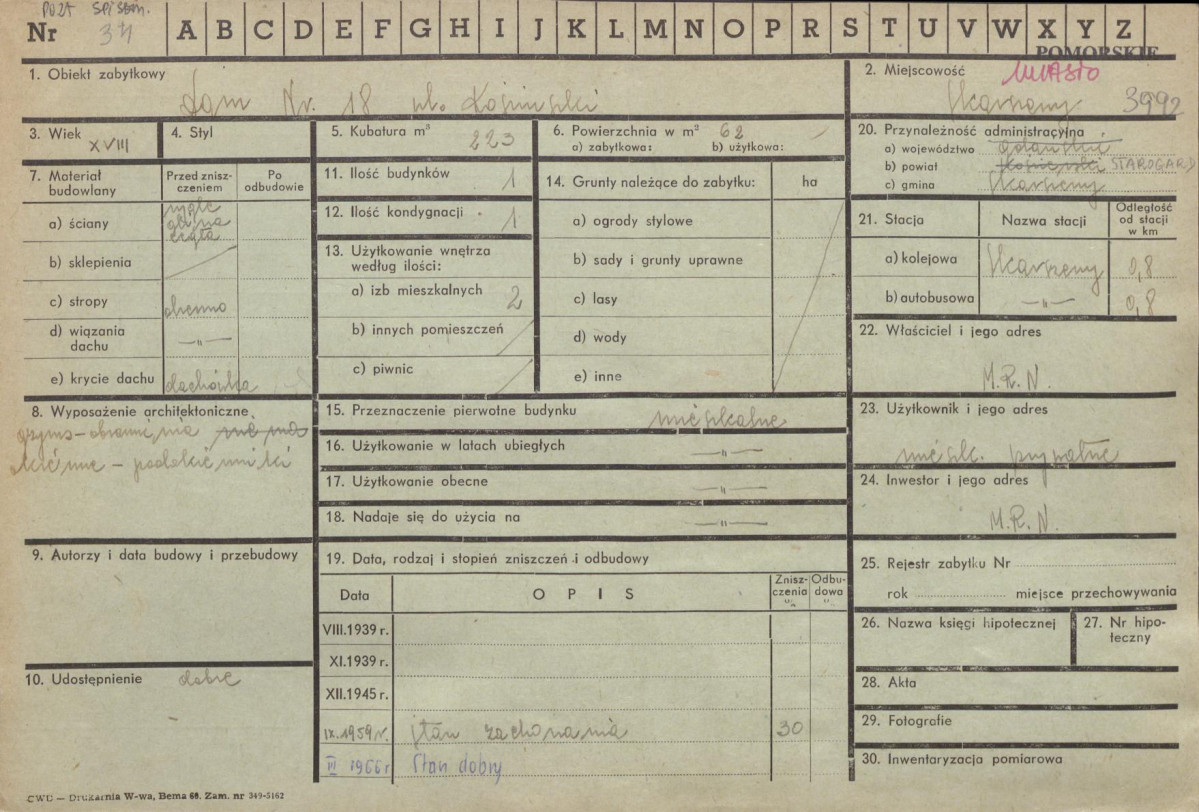 POZA SPISEM.
Nr 34 A B C D E F G H I J K L M N O P R S T U V W X Y Z
POMORSKIE
1. Obiekt zabytkowy
Dom Nr. 18 pl.
2. Miejscowość MIASTO
Skarszewy 3992
3. Wiek XVIII
4. Styl
5. Kubatura m³ 223
6. Powierzchnia w m² 62
a) zabytkowa: b) użytkowa:
20. Przynależność administracyjna
a) województwo gdańskie
b) powiat kościerski STAROGARD
c) gmina Skarszewy
7. Materiał budowlany
Przed znisz-
czeniem
Po
odbudowie
a) ściany
cegła
b) sklepienia
c) stropy drewno
d) wiązania
dachu —"—
e) krycie dachu dachówka
11. Ilość budynków 1
12. Ilość kondygnacji 1
13. Użytkowanie wnętrza
według ilości:
a) izb mieszkalnych 2
b) innych pomieszczeń
c) piwnic
14. Grunty należące do zabytku: ha
a) ogrody stylowe
b) sady i grunty uprawne
c) lasy
d) wody
e) inne
21. Stacja Nazwa stacji
Odległość
od stacji
w km
a) kolejowa Skarszewy 0,8
b) autobusowa —"— 0,8
22. Właściciel i jego adres
M.R.N.
8. Wyposażenie architektoniczne
15. Przeznaczenie pierwotne budynku mieszkalne
16. Użytkowanie w latach ubiegłych —"—
17. Użytkowanie obecne —"—
18. Nadaje się do użycia na —"—
23. Użytkownik i jego adres
mieszk. prywatne
24. Inwestor i jego adres
M.R.N.
9. Autorzy i data budowy i przebudowy
19. Data, rodzaj i stopień zniszczeń i odbudowy
Data OPIS
Znisz-
czenia
%
Odbu-
dowa
%
VIII.1939 r.
XI.1939 r.
XII.1945 r.
IX.1959 r. stan zachowania 30
VI 1966 r Stan dobry
25. Rejestr zabytku Nr
rok miejsce przechowywania
26. Nazwa księgi hipotecznej
27. Nr hipo-
teczny
10. Udostępnienie dobre
28. Akta
29. Fotografie
30. Inwentaryzacja pomiarowa
CWD — Drukarnia W-wa, Bema 65. Zam. nr 349-5162